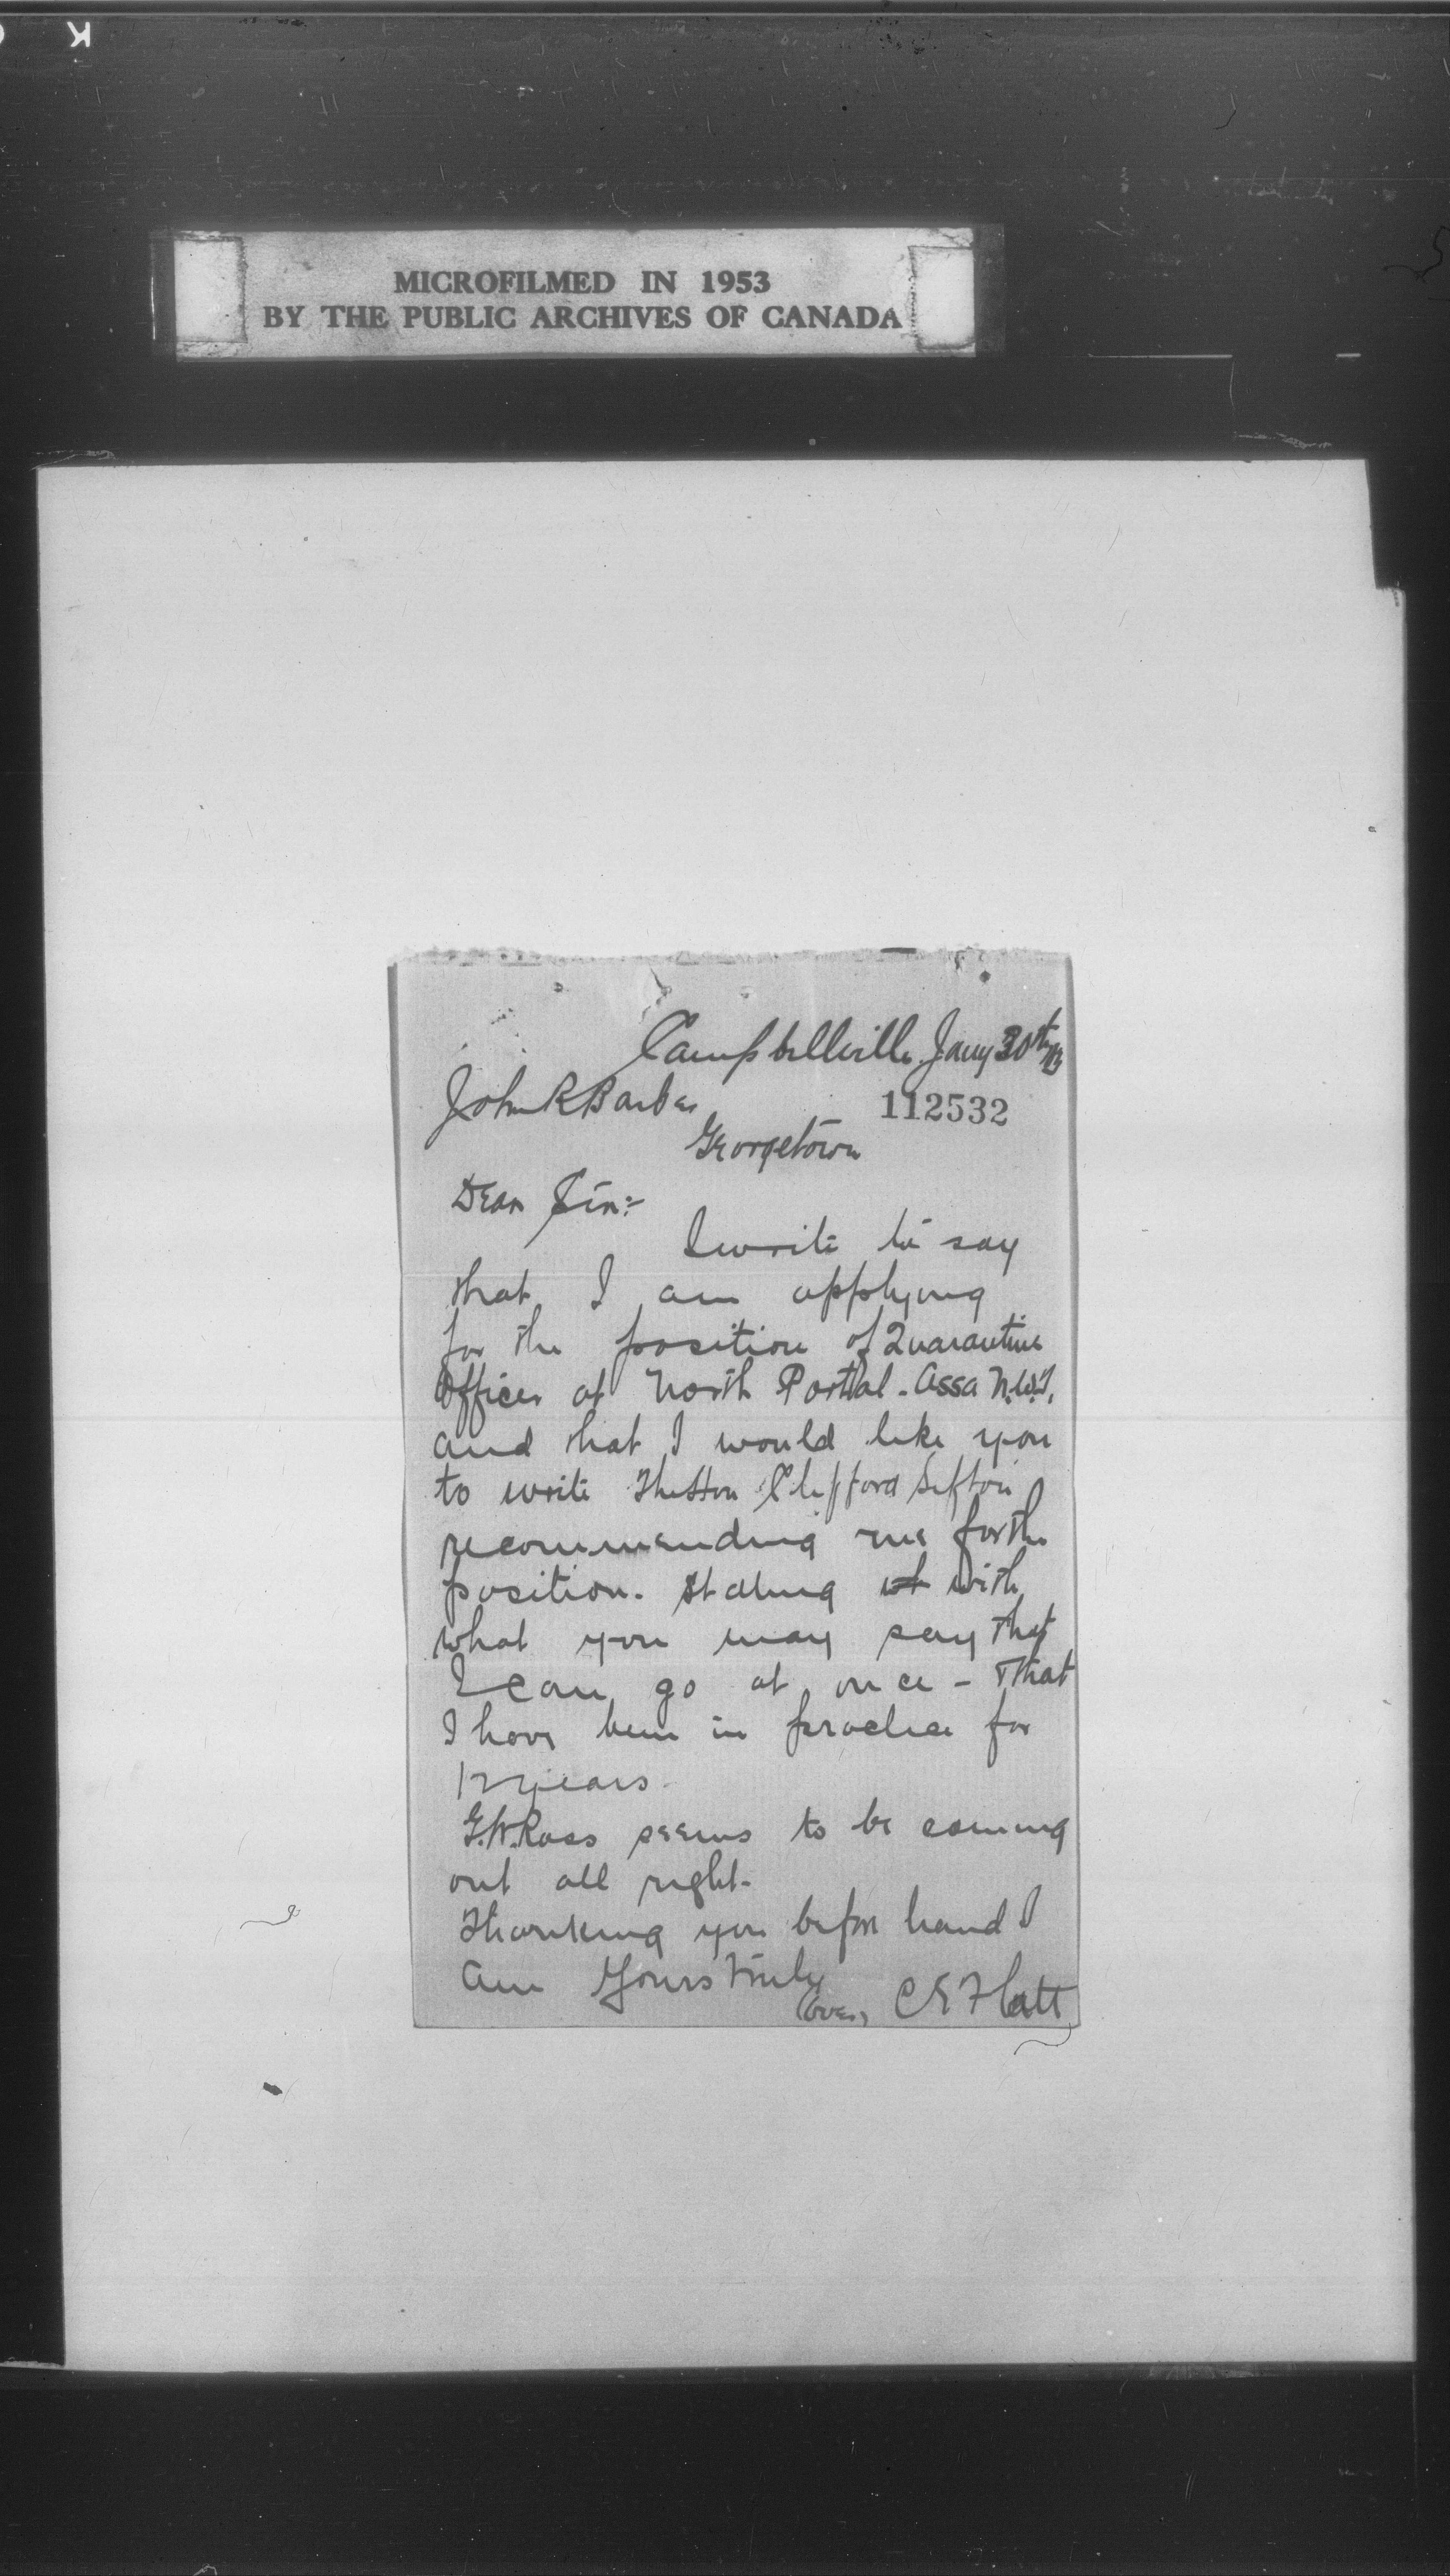 K
MICROFILMED IN 1953
BY THE PUBLIC ARCHIVES OF CANADA
Campbellville, Jany 30th
John R Barber
112532
Georgetown
Dear Sir:-
I write to say
that I am applying
for the position of Quarantine
Officer at North Portal - Assa N.W.T.
and that I would like you
to write The Hon Clifford Sifton
recommending me for the
position. Stating with
what you may say that
I can go at once - That
I have been in practice for
12 years.
G.W. Ross seems to be coming
out all right.
Thanking you before hand I
am Yours truly
(over) C E Flatt